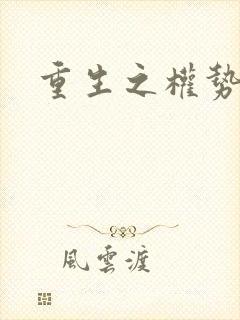 重生之權勢
風雲渡